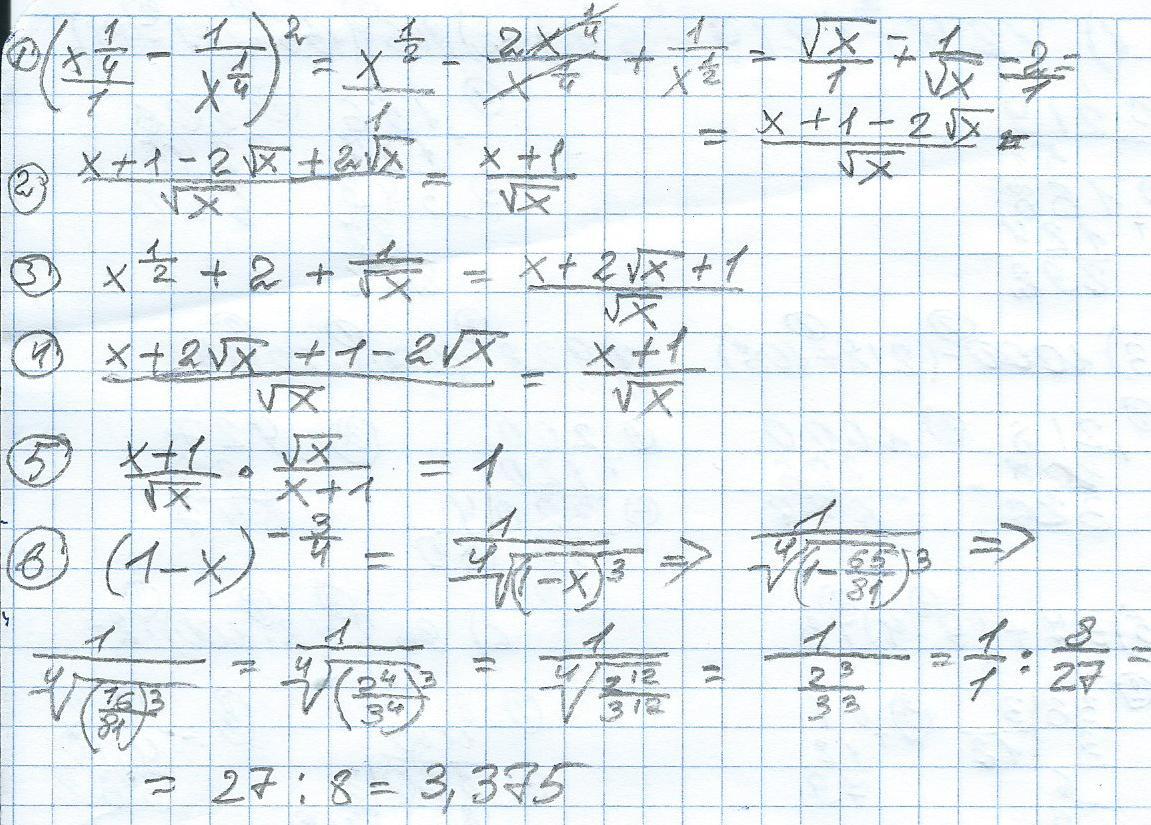 ① (x^(1/4)/1 − 1/x^(1/4))² = x^(1/2)/1 − 2x^(1/4)/x^(1/4) + 1/x^(1/2) = √x/1 + 1/√x − 2/1 =
= (x + 1 − 2√x)/√x =
② (x + 1 − 2√x + 2√x)/√x = (x + 1)/√x
③ x^(1/2) + 2 + 1/√x = (x + 2√x + 1)/√x
④ (x + 2√x + 1 − 2√x)/√x = (x + 1)/√x
⑤ (x + 1)/√x · √x/(x + 1) = 1
⑥ (1 − x)^(−3/4) = 1/⁴√((1 − x)³) ⇒ 1/⁴√((1 − 65/81)³) ⇒
1/⁴√((16/81)³) = 1/⁴√((2⁴/3⁴)³) = 1/⁴√(2¹²/3¹²) = 1/(2³/3³) = 1/1 : 8/27 =
= 27 : 8 = 3,375